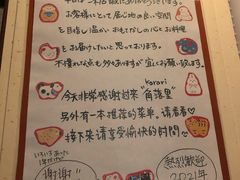 お客様にとって居心地の良い空間
を目指し温かいおもてなしの心とお料理
をお届けしたいと思っております。
不慣れな点も多々ありますが宜しくお願い致します。
karari
今天非常感谢过来"角落里"
另外有一本推荐的菜单。请看看♡
接下来请享受愉快的时间♡
谢谢
热烈歓迎
2021年